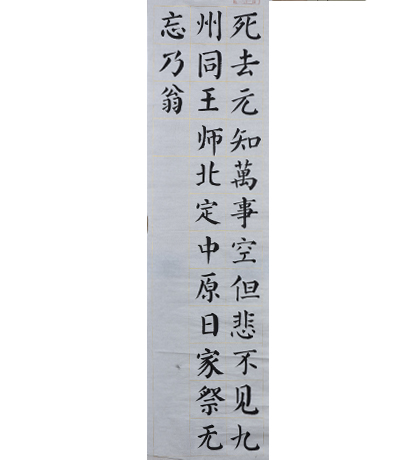 死去元知萬事空但悲不见九
州同王师北定中原日家祭无
忘乃翁